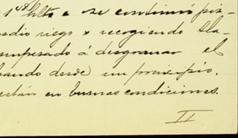 1º hilo e se continuó por
medio riego e recogiendo la
empesado á desgranar el
bando desde un principio.
están en buenas condiciones.
II